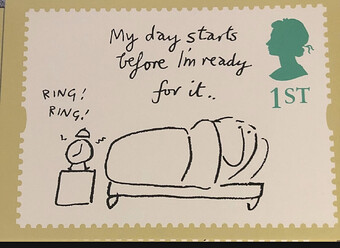 My day starts
before I'm ready
for it..
RING!
RING!
1ST